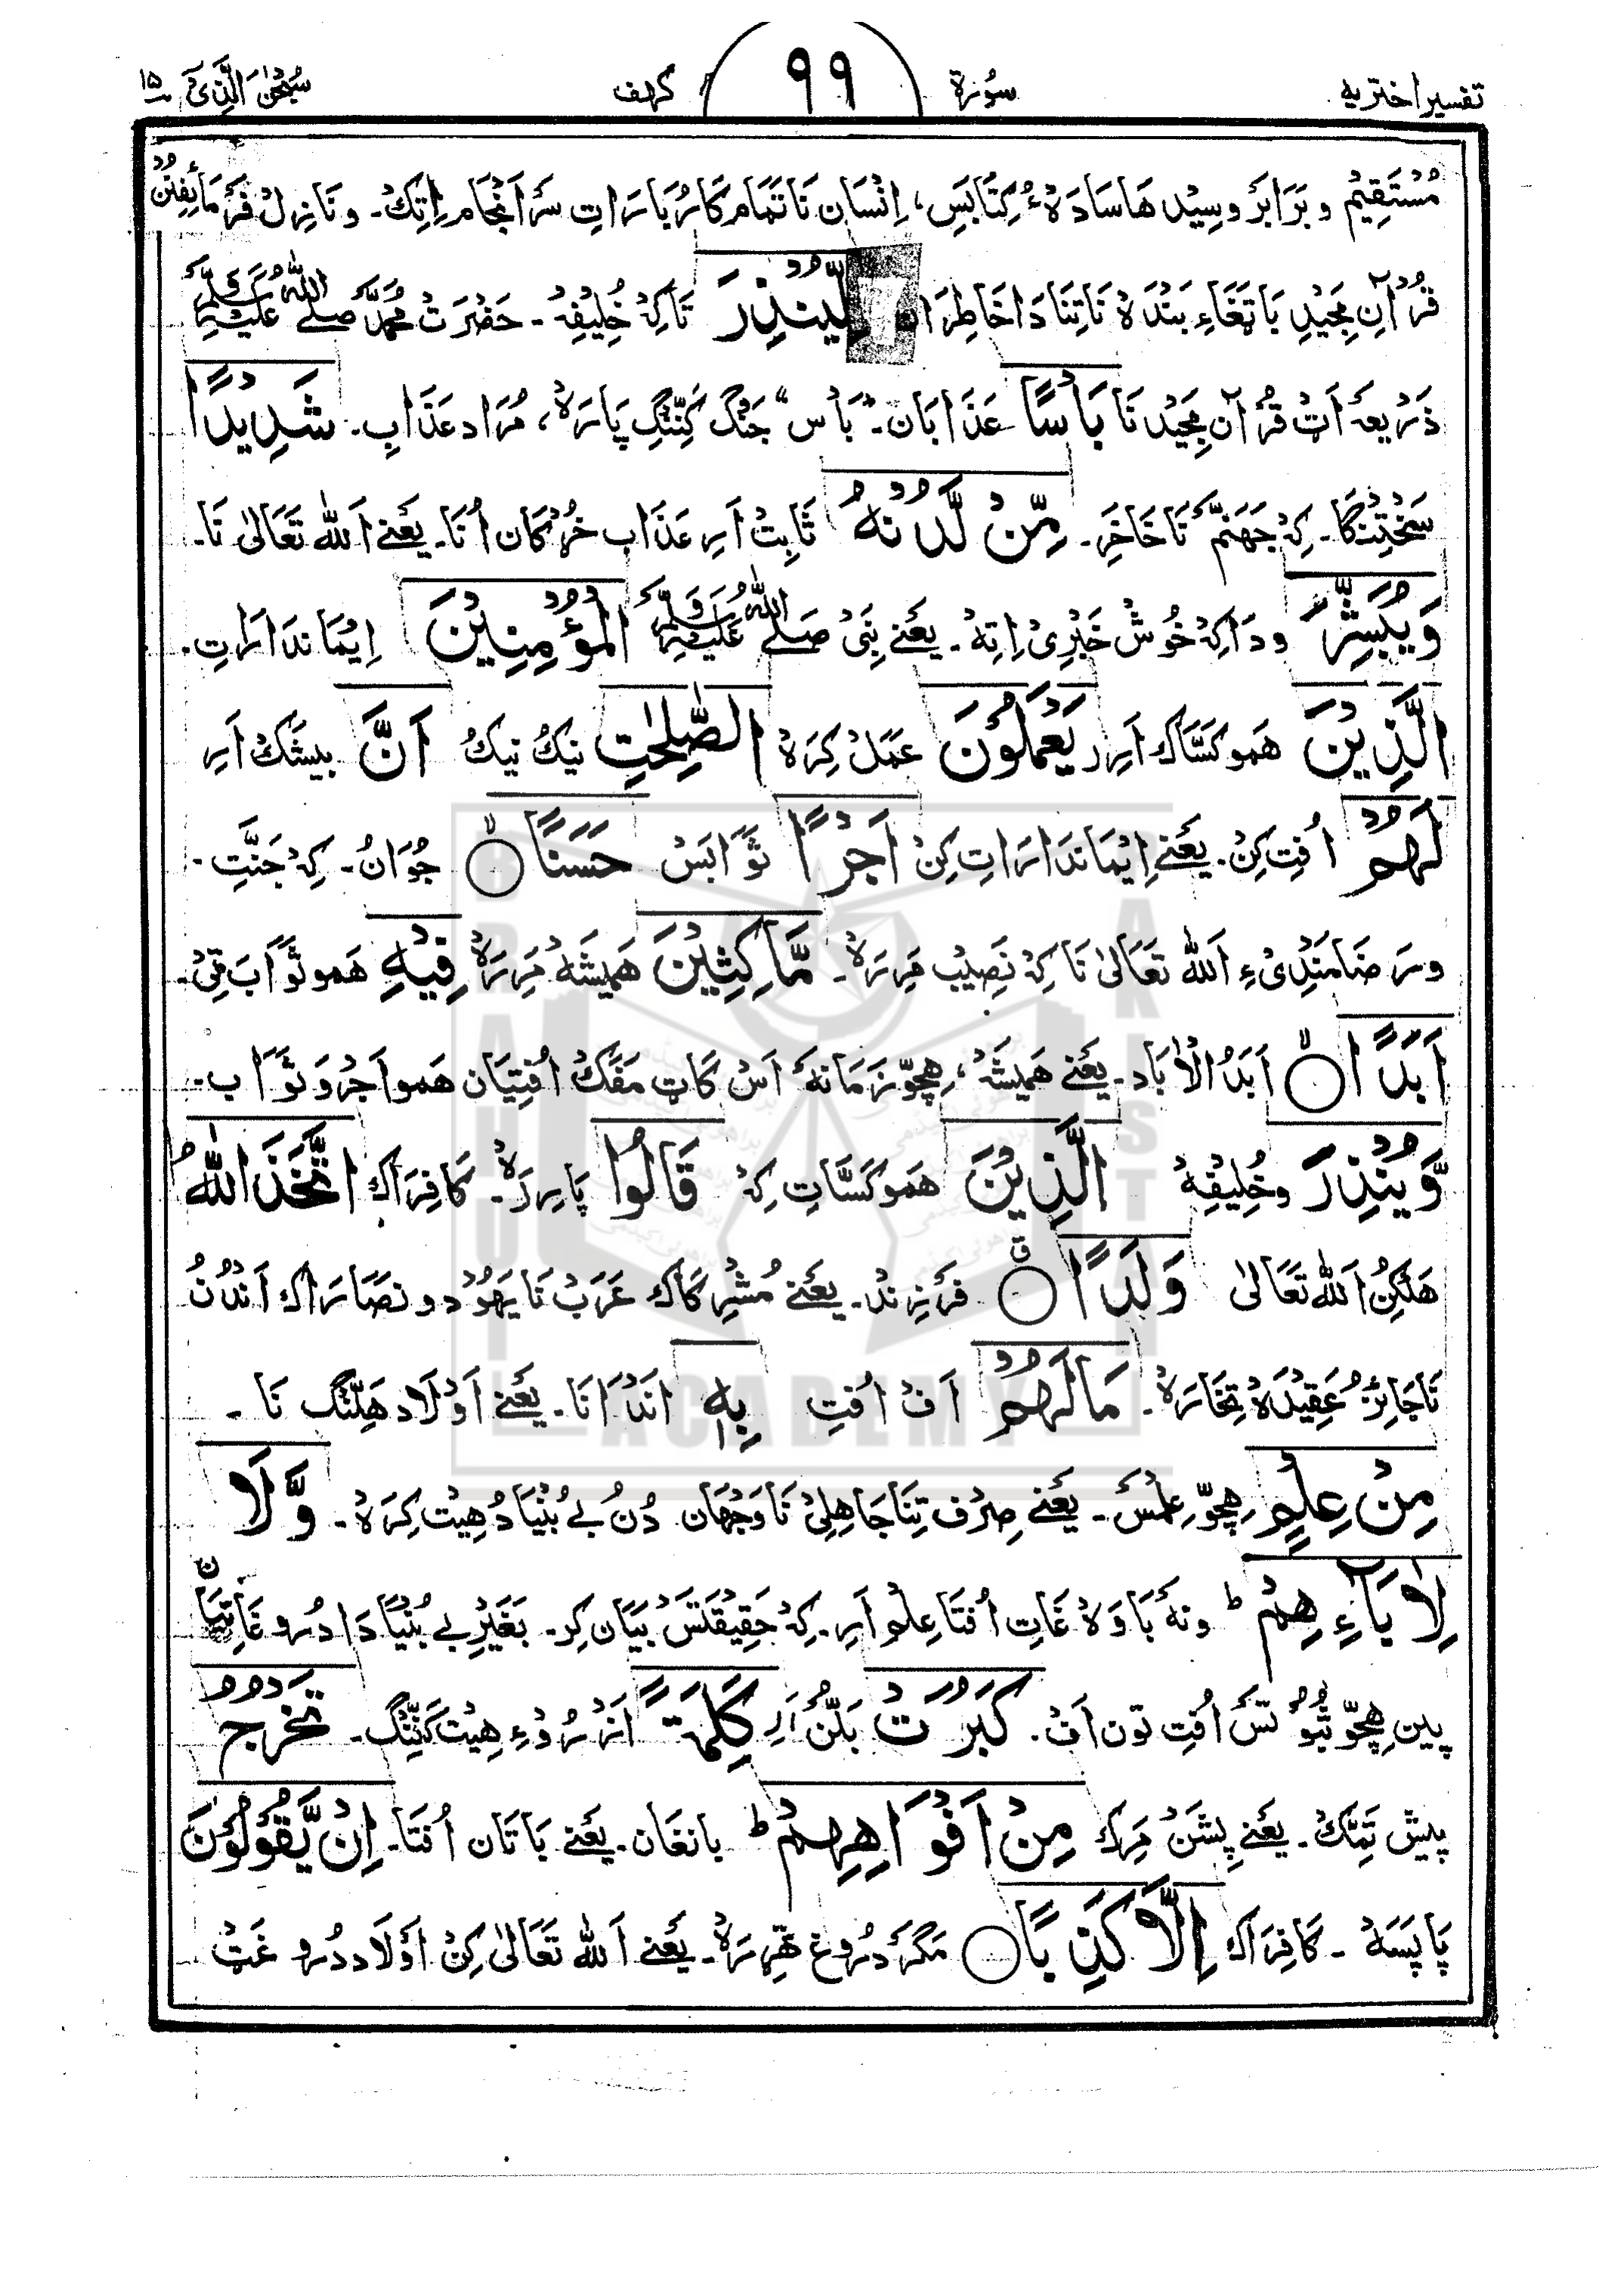 تفسیر اختریه سُوْرَة ۹۹ کہف سُبْحٰنَ الَّذِیْٓ ۱۵
مُسْتَقِیْمْ و بَرَابَرْ و سِیْد هَا سَادَهْ ءُ کِتَابَسِ، اِنْسَان نَا تَمَام کَارُبَارَاتِ سَرْاَنْجَام اِتِکْ۔ و نَازِلْ فَرْمَائِفِنُنْ
قُرْآنِ مَجِیْدِ بَاتَغَاءِ بَنْدَهْ نَا تِنَا دَا خَاطِرَان لِّیُنْذِرَ تَاکِہْ خُلِیْفِہْ۔ حَضْرَتْ مُحَمَّدْ صَلَّے اللّٰهُ عَلَیْہِ وَسَلَّمَ
ذَرِیْعَہ اَتْ قُرْآنِ مَجِیْد نَا بَاْسًا عَذَابَان۔ "بَاْس" جَنْگ کَنِّنْگِ پَارَهْ، مُرَاد عَذَابِ۔ شَدِیْدًا
سَخْتِنْگَا۔ کِہْ جَهَنَّمْ نَا خَاخَرِ۔ مِّنْ لَّدُنْهُ ثَابِتْ اَرِ عَذَاب خُرْکَان اُنَا۔ یَعْنے اَللّٰه تَعَالٰی نَا۔
وَیُبَشِّرَ و دَاکِہْ خُوْش خَبْرِیْ اِتِہْ۔ یَعْنے نَبِیْ صَلَّے اللّٰهُ عَلَیْہِ وَسَلَّمَ الْمُؤْمِنِیْنَ اِیْمَاندَارَاتِ۔
الَّذِیْنَ هَمو کَسَّاک اَرِر یَعْمَلُوْنَ عَمَلْ کِرَهْ الصّٰلِحٰتِ نیکْ نیکْ اَنَّ بیشَکْ اَرِ
لَهُمْ اُفِتِ کِنْ۔ یَعْنے اِیْمَاندَارَاتِ کِنْ اَجْرًا ثَوَابَسْ حَسَنًا جُوَانُ۔ کِہْ جَنَّتِ۔
و رَضَامَنْدِیْ ءِ اَللّٰه تَعَالٰی نَا کِہْ نَصِیْب مَرِرَهْ۔ مَّاکِثِیْنَ هَمِیْشَہْ مَرِرَهْ فِیْهِ هَمو ثَوَابَ ٹِی۔
اَبَدًا اَبَدُ الْاٰبَاد۔ یَعْنے هَمِیْشَہْ، هِچّو زَمَانَہْ اَسْ کَاٹِ مَفَکْ اُفِتِیَان هَمو اَجْرُ وَ ثَوَاب۔
وَّیُنْذِرَ و خُلِیْفِہْ الَّذِیْنَ هَمو کَسَّاتِ کِہْ قَالُوا پَارِرَهْ۔ کَافِرَاک اتَّخَذَ اللّٰهُ
هَلْکُنْ اَللّٰه تَعَالٰی وَلَدًا فَرْزِندْ۔ یَعْنے مُشْرِکَاک عَرَبْ نَا یَهُوْد و نَصَارَاک اَنْدُنْ
نَاجَائِزْ عَقِیْدَهْ تِخَارَهْ۔ مَا لَهُمْ اَفْ اُفِتِ بِهٖ اَنْدَانَا۔ یَعْنے اَوْلَاد هَلِّنْگ نَا۔
مِنْ عِلْمٍ هِچّو عِلْمَسْ۔ یَعْنے صِرْف تِنَا جَاهِلِیْ نَا وَجْهَان دُنْ بے بُنْیَاد هِیْت کِرَهْ۔ وَّلَا
لِاٰبَآئِهِمْ ؕ و نَہ بَاوَهْ غَاتِ اُفِتَا عِلْم اَرِ۔ کِہْ حَقِیْقَتَسْ بَیَان کِر۔ بَغَیْر بے بُنْیَا دَا دُرو غَاتِیَان
پین هِچّو ثُبُو تَسْ اُفِتِ تون اَفْ۔ کَبُرَتْ بَلُّنْ اَرِ کَلِمَةً اَنْزرُوْءِ هِیْت کَنِّنْگ۔ تَخْرُجُ
پیش تَمِّکْ۔ یَعْنے پِشَنْ مَرِک مِنْ اَفْوَاهِهِمْ ؕ بانغَان۔ یَعْنے بَاتَان اُفِتَا۔ اِنْ یَّقُوْلُوْنَ
پَاپَسَہْ۔ کَافِرَاک اِلَّا کَذِبًا مَگَرْ دُرُوغ تَهِّرِرَهْ۔ یَعْنے اَللّٰه تَعَالٰی کِنْ اَوْلَاد دُرو غَتْ
BRAHUI
ACADEMY
PAKISTAN